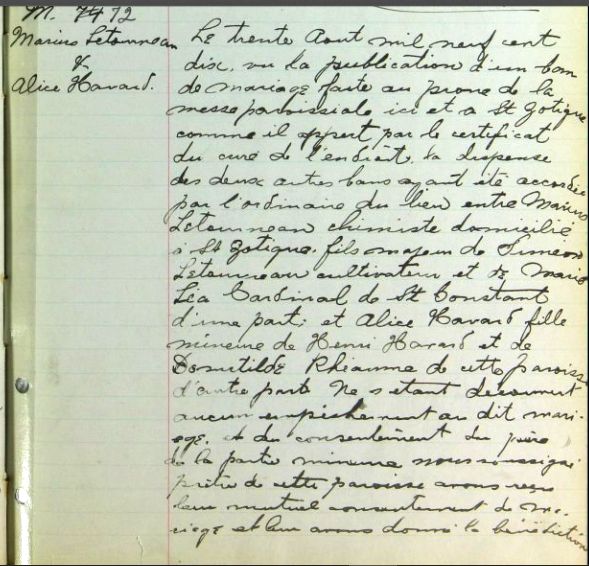 M. 7472
Marius Letourneau
&
Alice Havard.
Le trente Aout mil neuf cent
dix, vu la publication d'un ban
de mariage faite au prone de la
messe paroissiale ici et a St Zotique
comme il appert par le certificat
du curé de l'endroit. la dispense
des deux autres bans ayant été accordée
par l'ordinaire du lieu entre Marius
Letourneau chimiste domicilié
a St Zotique. fils majeur de Simeon
Letourneau cultivateur et de Marie
Léa Cardinal de St Constant
d'une part; et Alice Havard fille
mineure de Henri Havard et de
Domitilde Rhéaume de cette paroisse
d'autre part. Ne s'etant découvert
aucun empêchement au dit mari-
age. et du consentement du père
de la partie mineure nous soussigné
prêtre de cette paroisse avons reçu
leur mutuel consentement de ma-
riage et leur avons donné la bénédiction